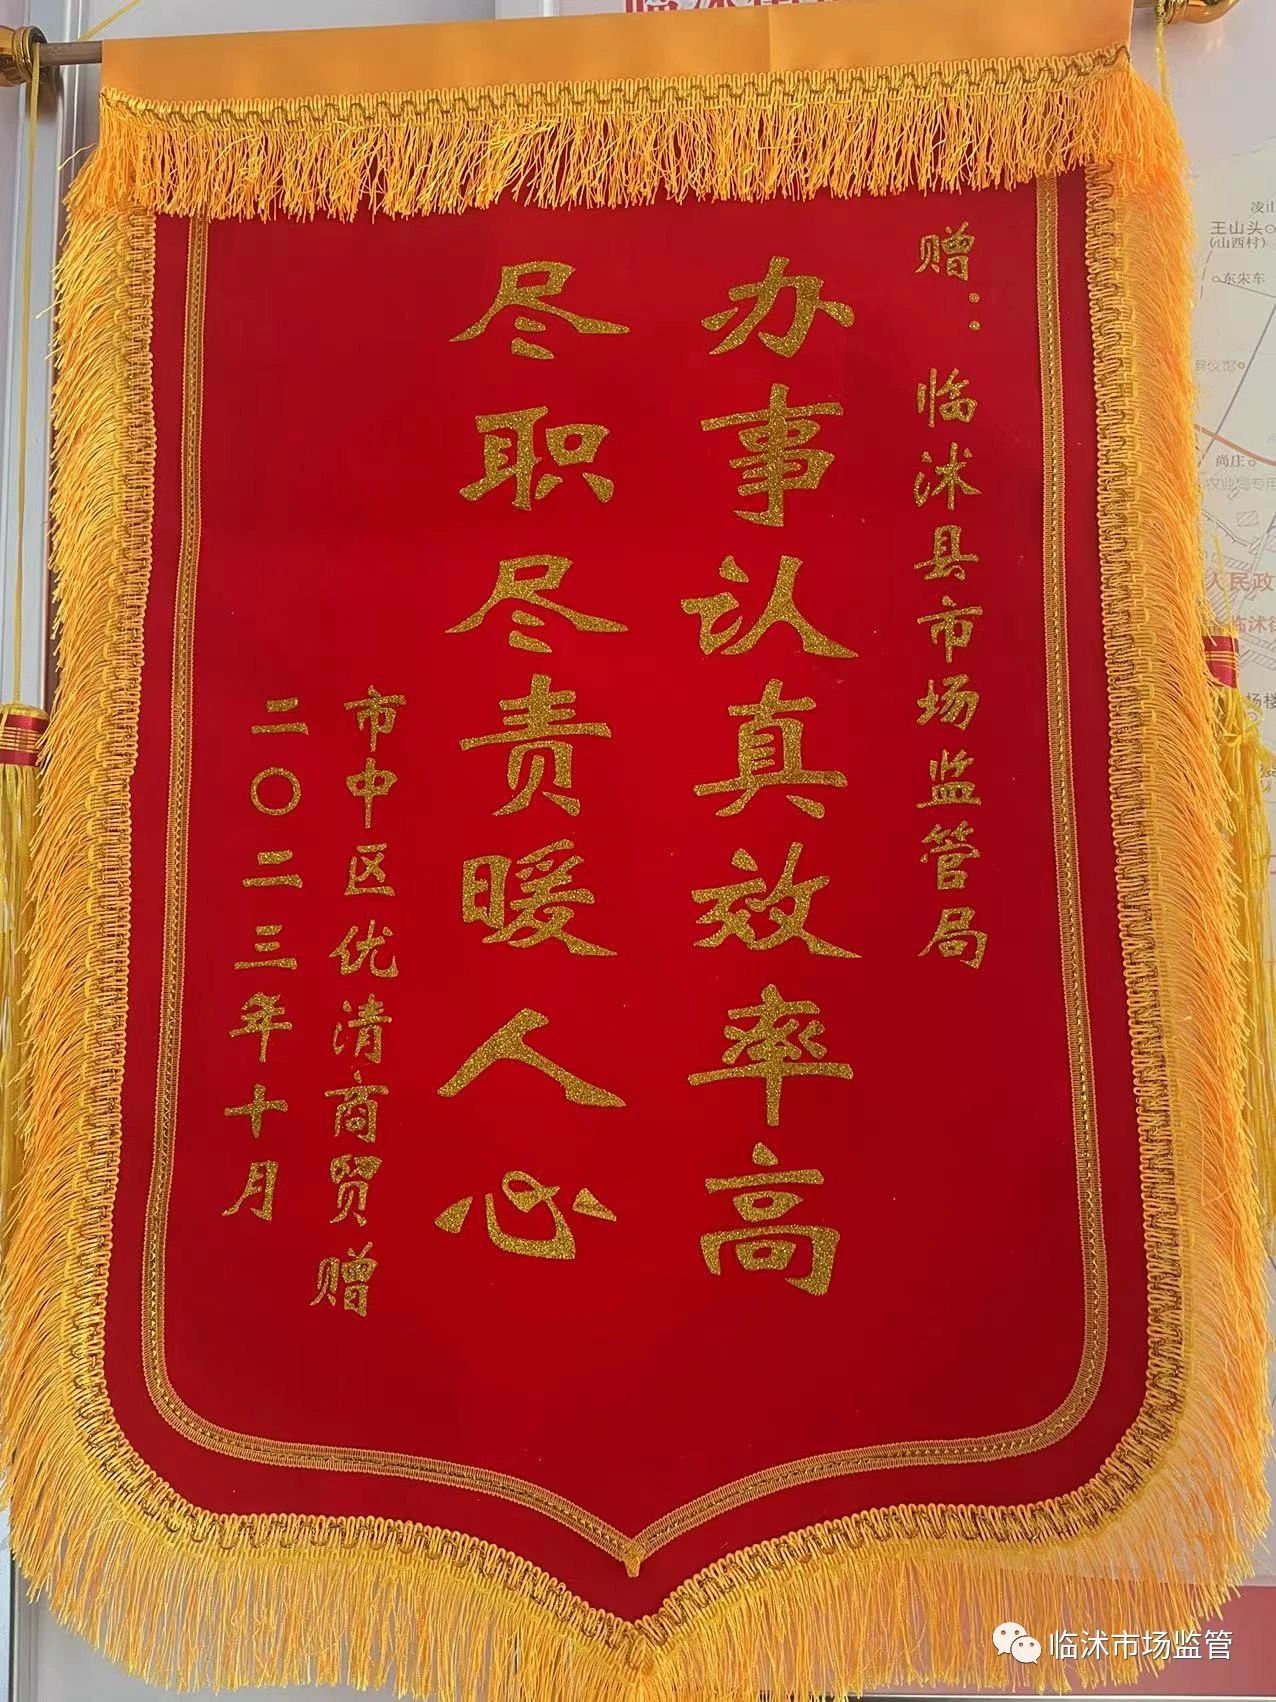 赠：临沭县市场监管局
办事认真效率高
尽职尽责暖人心
市中区优清商贸 赠
二〇二三年十月
王山头
(山西村)
东朱车
尚庄
人民政
临沭市场监管